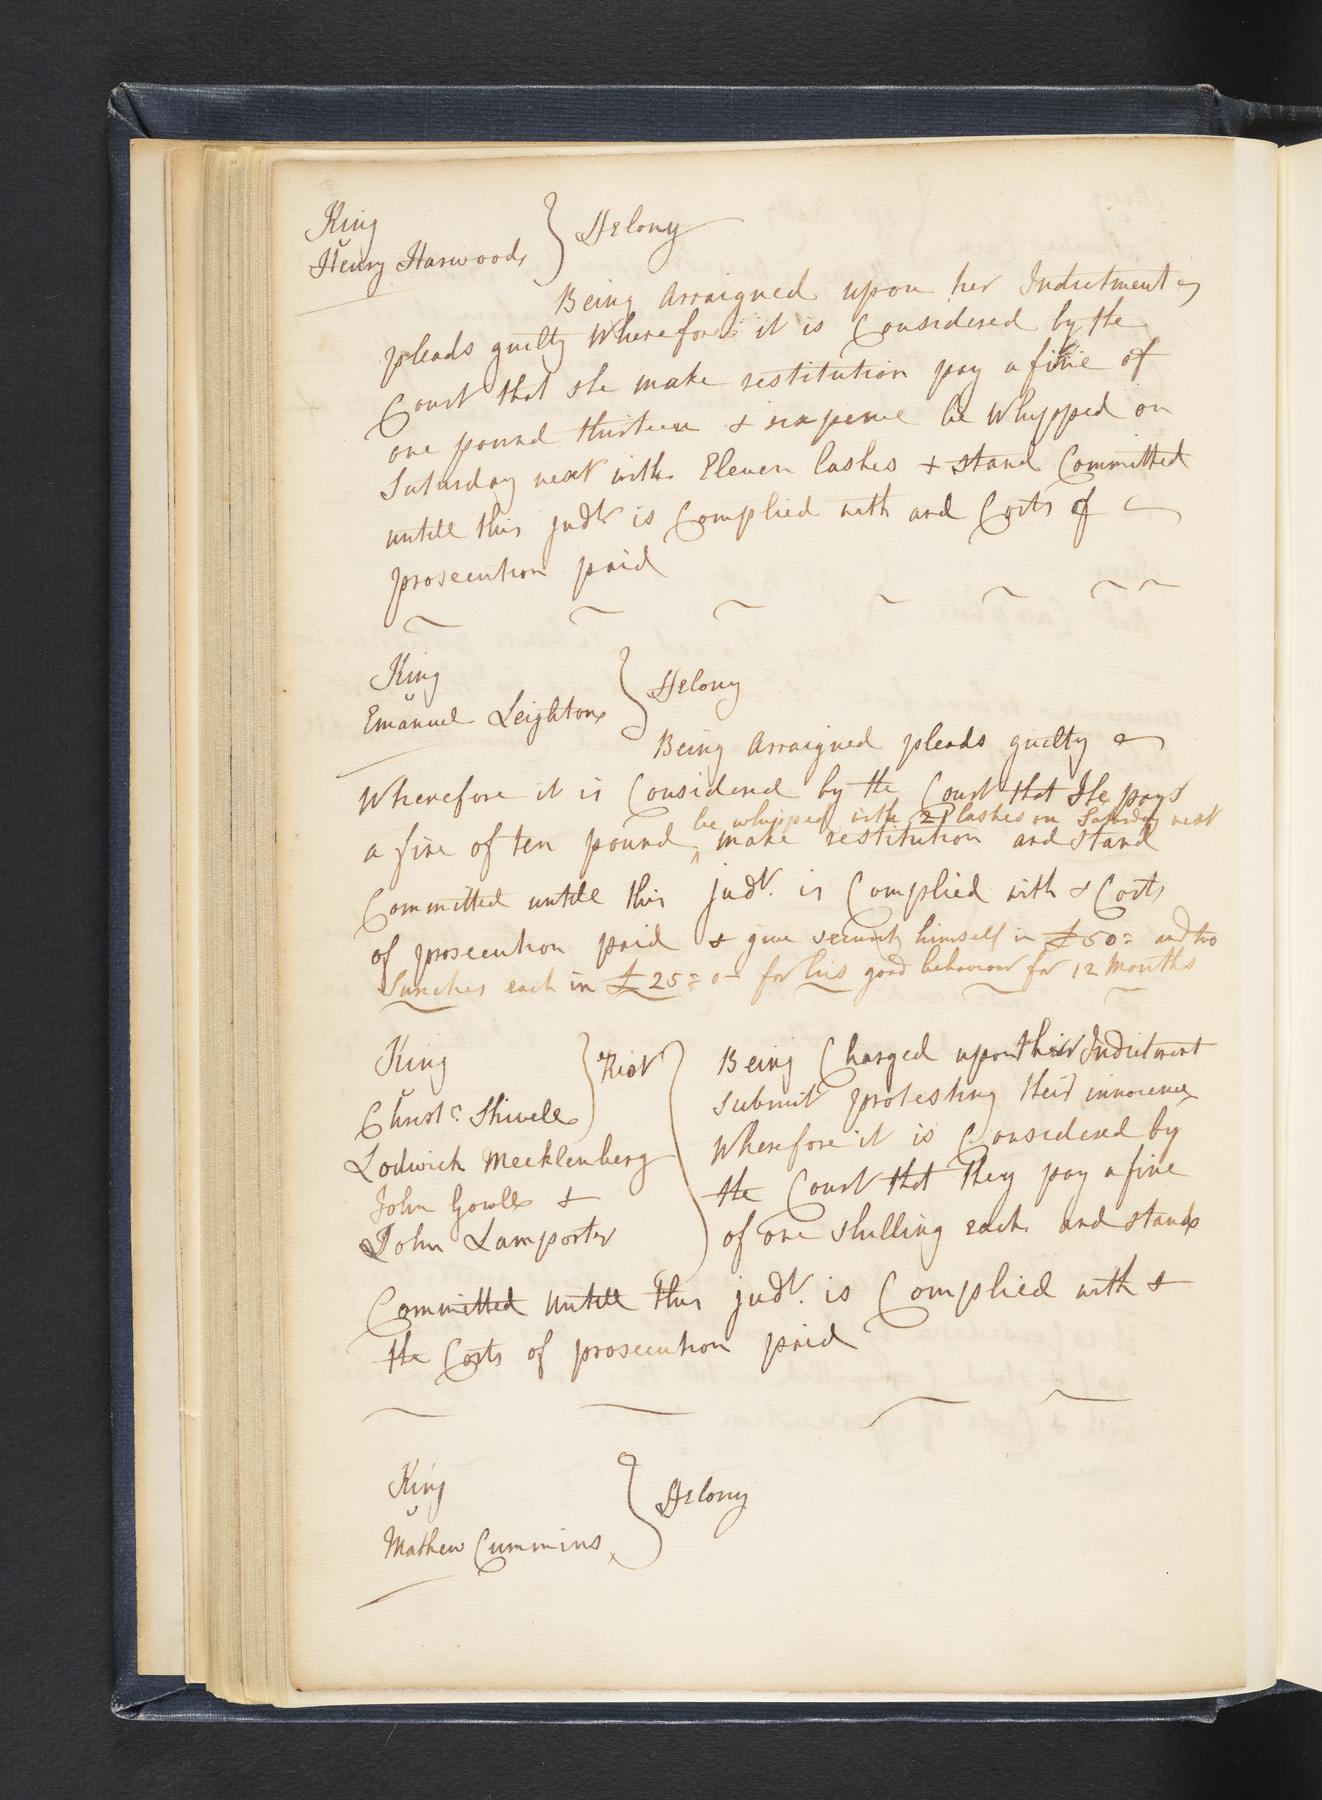 King
v
Henry Harwood } Felony
Being Arraigned upon her Indictment
pleads guilty Wherefore it is Considered by the
Court that she make restitution pay a fine of
one pound thirteen & sixpence be Whipped on
Saturday next with Eleven lashes & stand Committed
untill this judt is Complied with and Costs of
prosecution paid
King
v
Emanuel Leighton } Felony
Being Arraigned pleads guilty
Wherefore it is Considered by the Court that He pays
be whipped with 21 lashes on Saturday next
a fine of ten pound ^ make restitution and Stand
Committed untill this judt. is Complied with & Costs
of prosecution paid & give security himself in £50= and two
Sureties each in £25=0- for his good behaviour for 12 Months
King } Riot
v
Christr. Shivele
Lodwick Mecklenberg
John Gowle &
John Lamporter
Being Charged upon their Indictment
submit protesting their innocence
Wherefore it is Considered by
the Court that they pay a fine
of one shilling each and stand
Committed Untill this judt. is Complied with &
the Costs of prosecution paid
King
v
Mathew Cummins } Felony